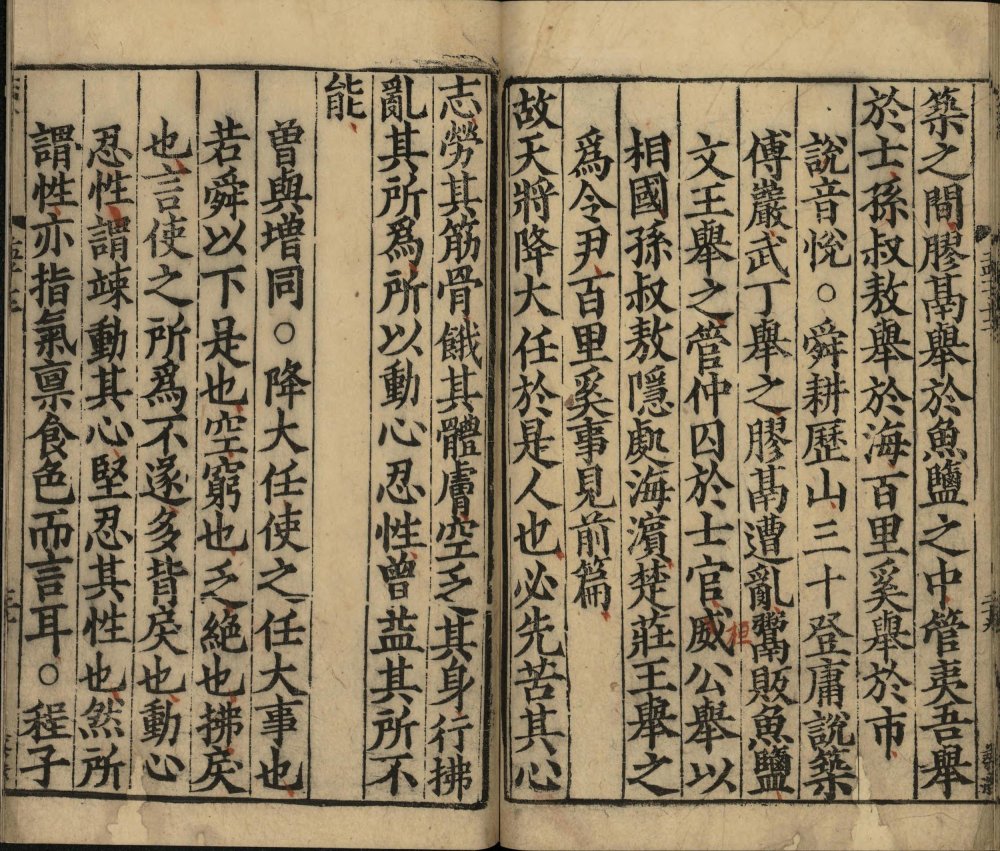 築之間膠鬲舉於魚鹽之中管夷吾舉
於士孫叔敖舉於海百里奚舉於市
說音悅○舜耕歷山三十登庸說築
傅巖武丁舉之膠鬲遭亂鬻販魚鹽
文王舉之管仲囚於士官威公舉以
桓
相國孫叔敖隱處海濱楚莊王舉之
為令尹百里奚事見前篇
故天將降大任於是人也必先苦其心
志勞其筋骨餓其體膚空乏其身行拂
亂其所為所以動心忍性曾益其所不
能
曾與增同○降大任使之任大事也
若舜以下是也空窮也乏絕也拂戾
也言使之所為不遂多背戾也動心
忍性謂竦動其心堅忍其性也然所
謂性亦指氣禀食色而言耳○程子